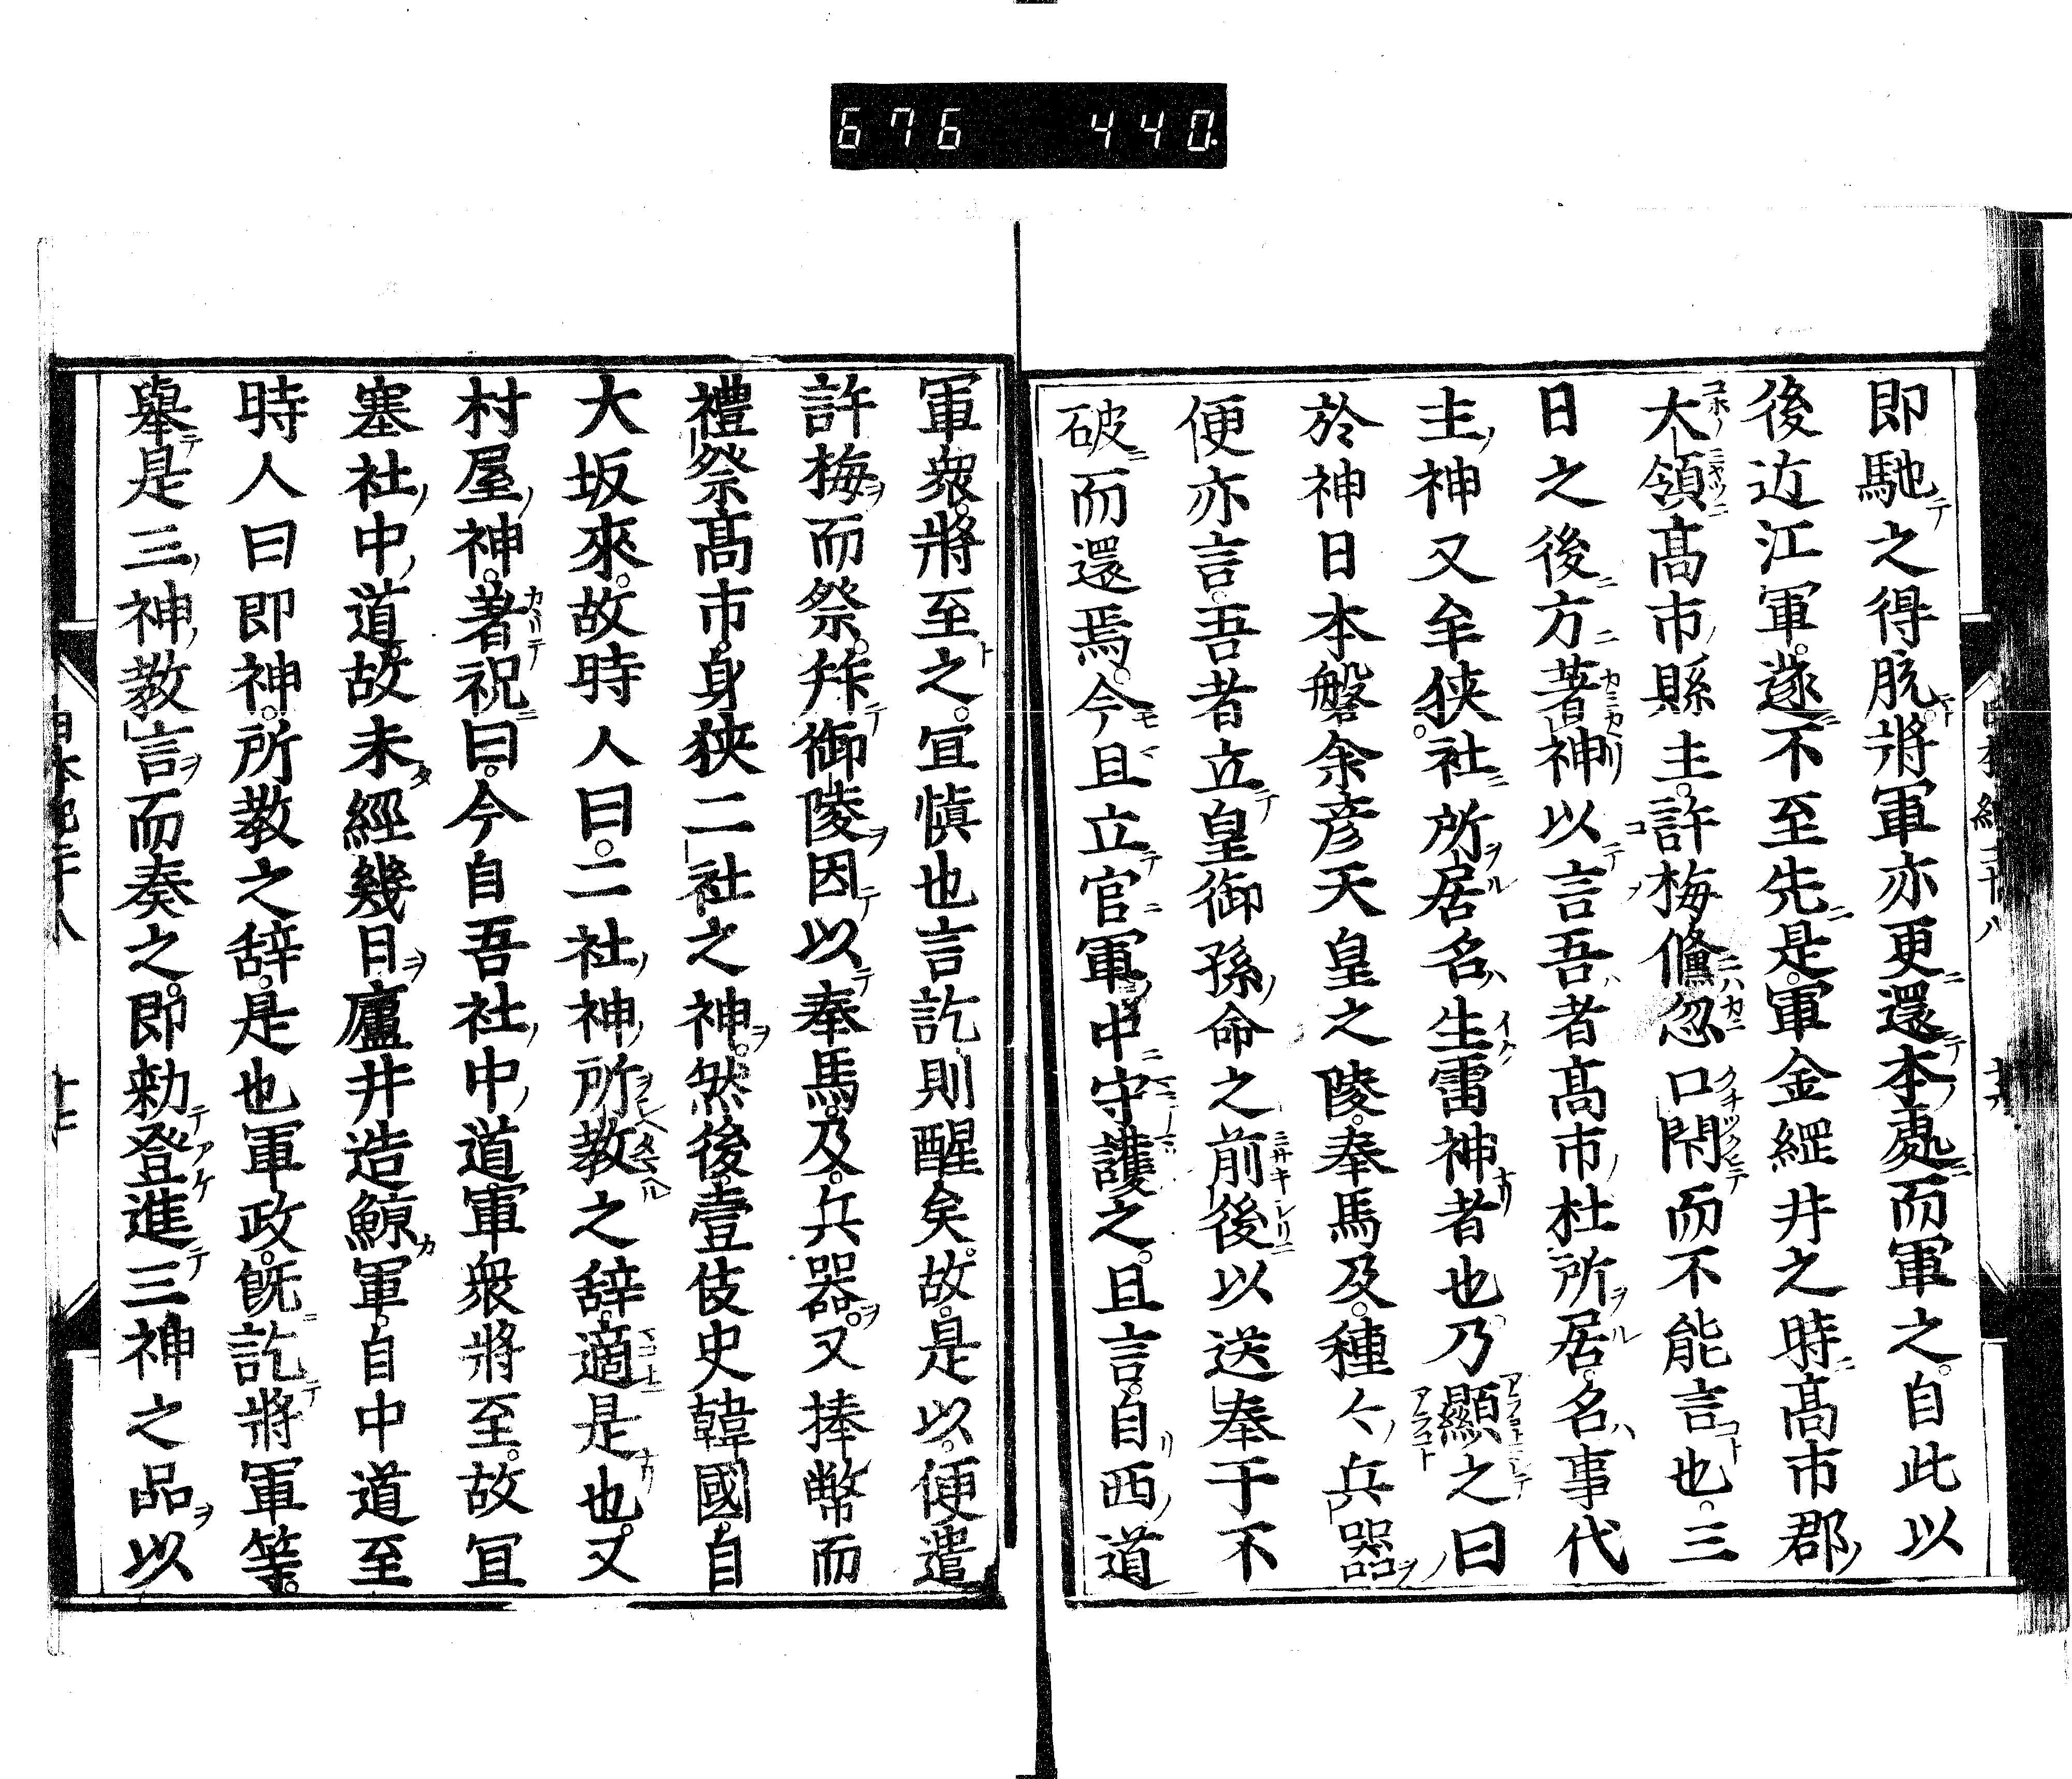 676 440
即馳之得脱將軍亦更還本處而軍之自此以
後近江軍遂不至先是軍金綱井之時髙市郡
大領髙市縣主許梅儵忽口閇而不能言也三
日之後方著神以言吾者髙市杜所居名事代
主神又牟狹社所居名生雷神者也乃顯之曰
於神日本磐余彦天皇之陵奉馬及種々兵器
便亦言吾者立皇御孫命之前後以送奉于不
破而還焉今且立官軍中守護之且言自西道
軍衆將至之冝愼也言訖則醒矣故是以便遣
許梅而祭拜御陵因以奉馬及兵器又捧幣而
禮祭髙市身狹二社之神然後壹伎史韓國自
大坂來故時人曰二社神所教之辞適是也又
村屋神著祝曰今自吾社中道軍衆將至故冝
塞社中道故未經幾日廬井造鯨軍自中道至
時人曰即神所教之辞是也軍政旣訖將軍等
擧是三神教言而奏之即勅登進三神之品以
日本紀二十八